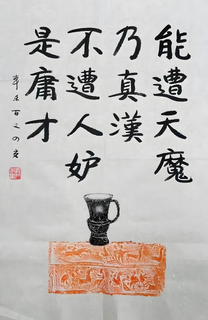 能遭天魔
乃真漢
不遭人妒
是庸才